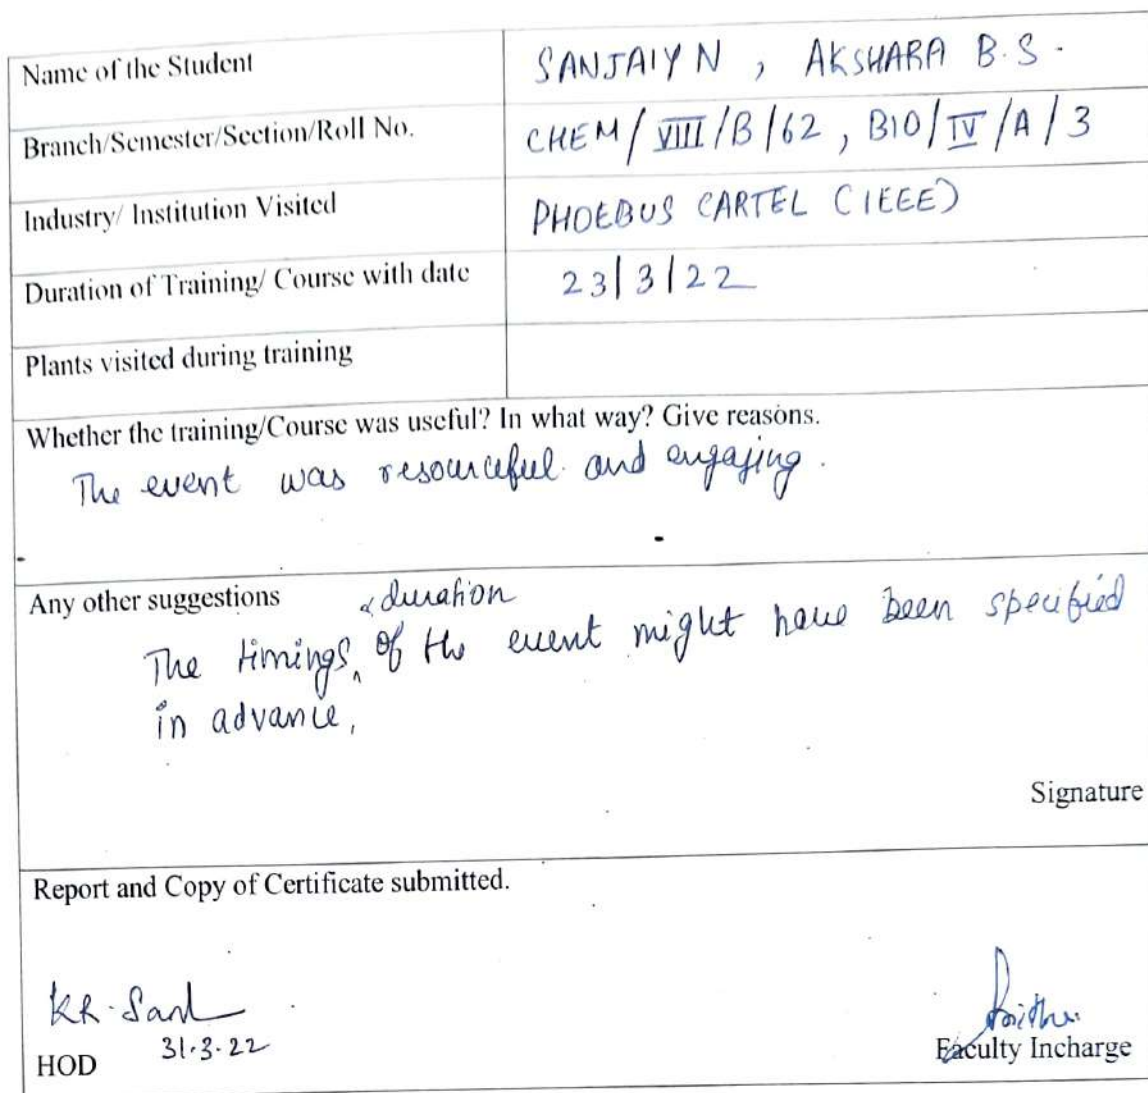 Name of the Student SANJAIY N , AKSHARA B.S.
Branch/Semester/Section/Roll No. CHEM/VIII/B/62, BIO/IV/A/3
Industry/ Institution Visited PHOEBUS CARTEL (IEEE)
Duration of Training/ Course with date 23/3/22
Plants visited during training
Whether the training/Course was useful? In what way? Give reasons.
The event was resourceful and engaging.
Any other suggestions
The timings & duration of the event might have been specified
in advance.
Signature
Report and Copy of Certificate submitted.
KR.
31.3.22
HOD Faculty Incharge